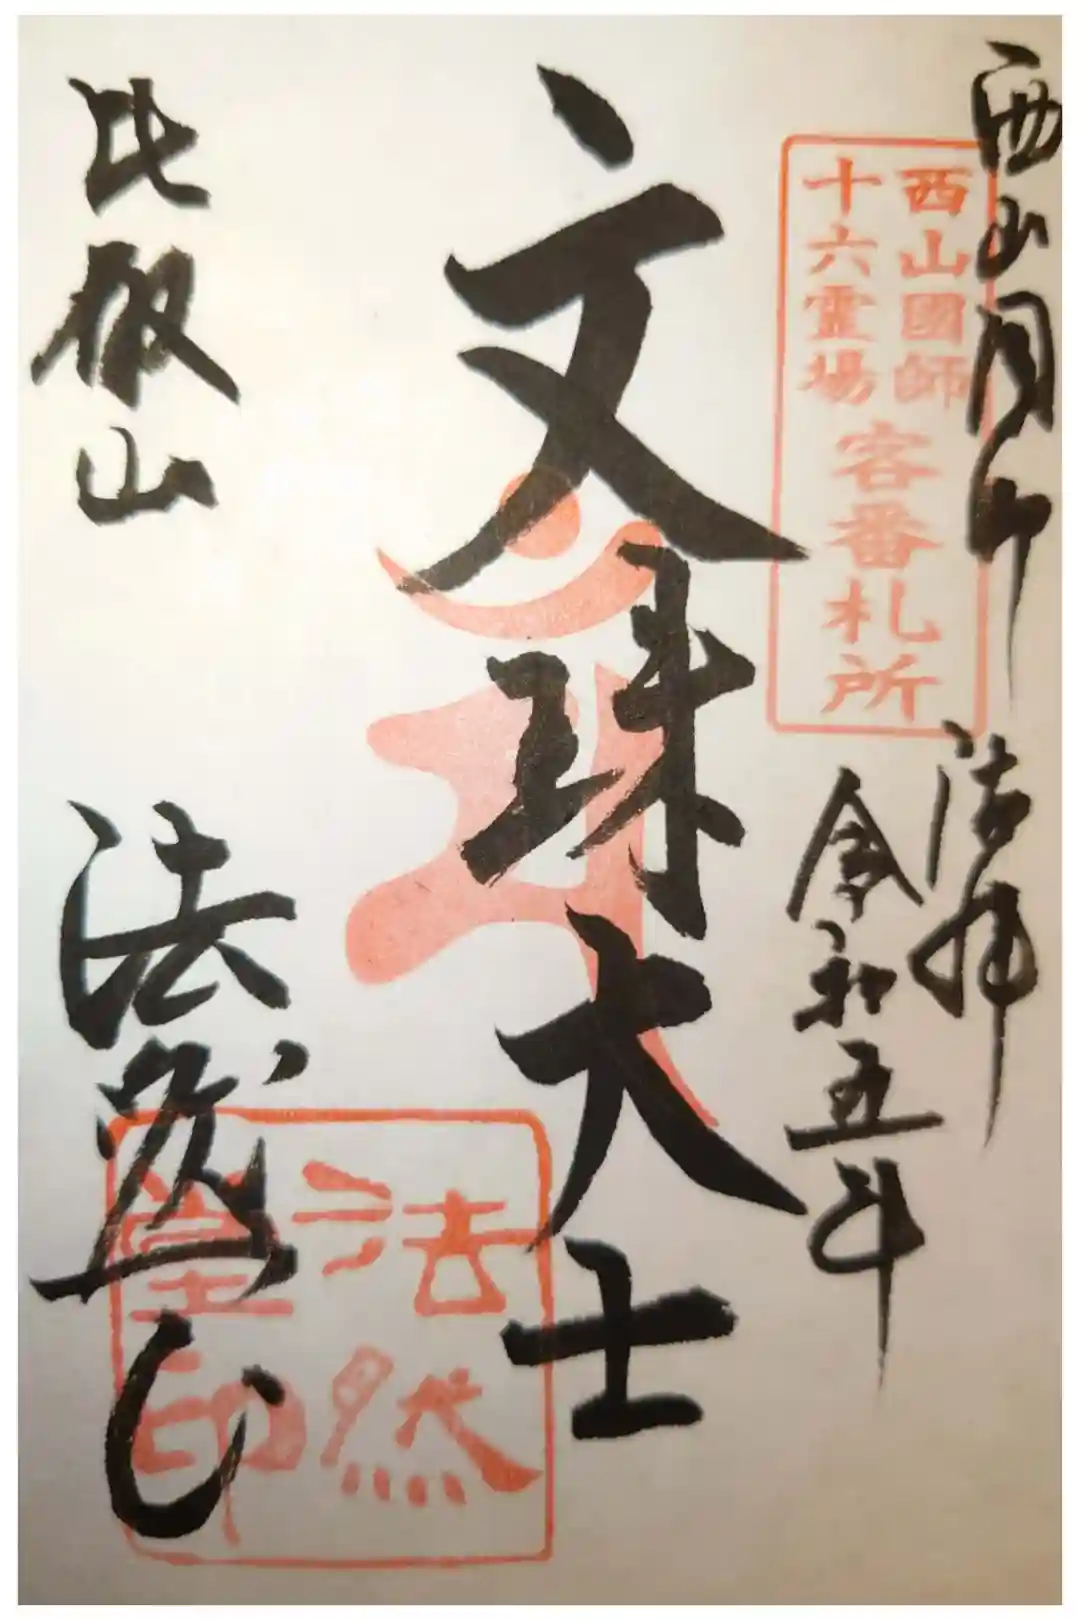 奉拝
令和五年
西山國師
十六霊場
客番札所
文珠大士
比叡山
法然堂
法然
堂印